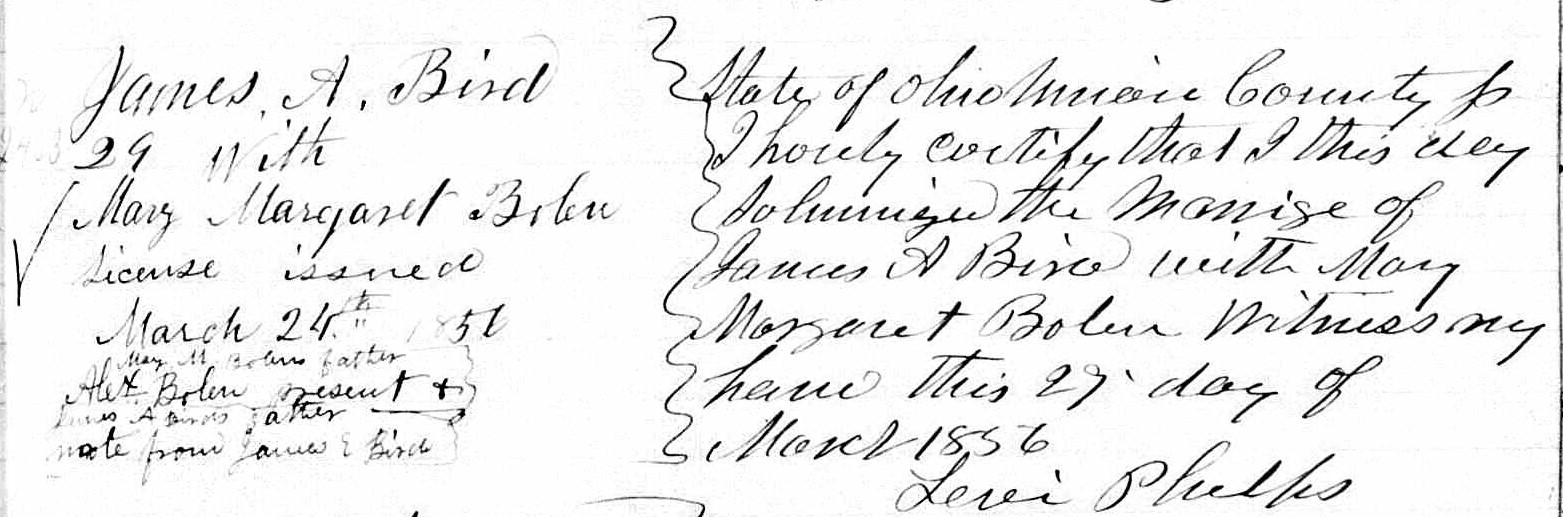 James. A. Bird
29 With
Mary Margaret Bolen
License issued
March 24th 1856
Mary M. Bolens father
Alex Bolen present &
James A Birds father
note from James E Bird
State of Ohio Union County ss
I hereby certify that I this day
Solumnized the Marrige of
James A Bird with Mary
Margaret Bolen Witness my
hand this 27 day of
March 1856
Levi Phelps